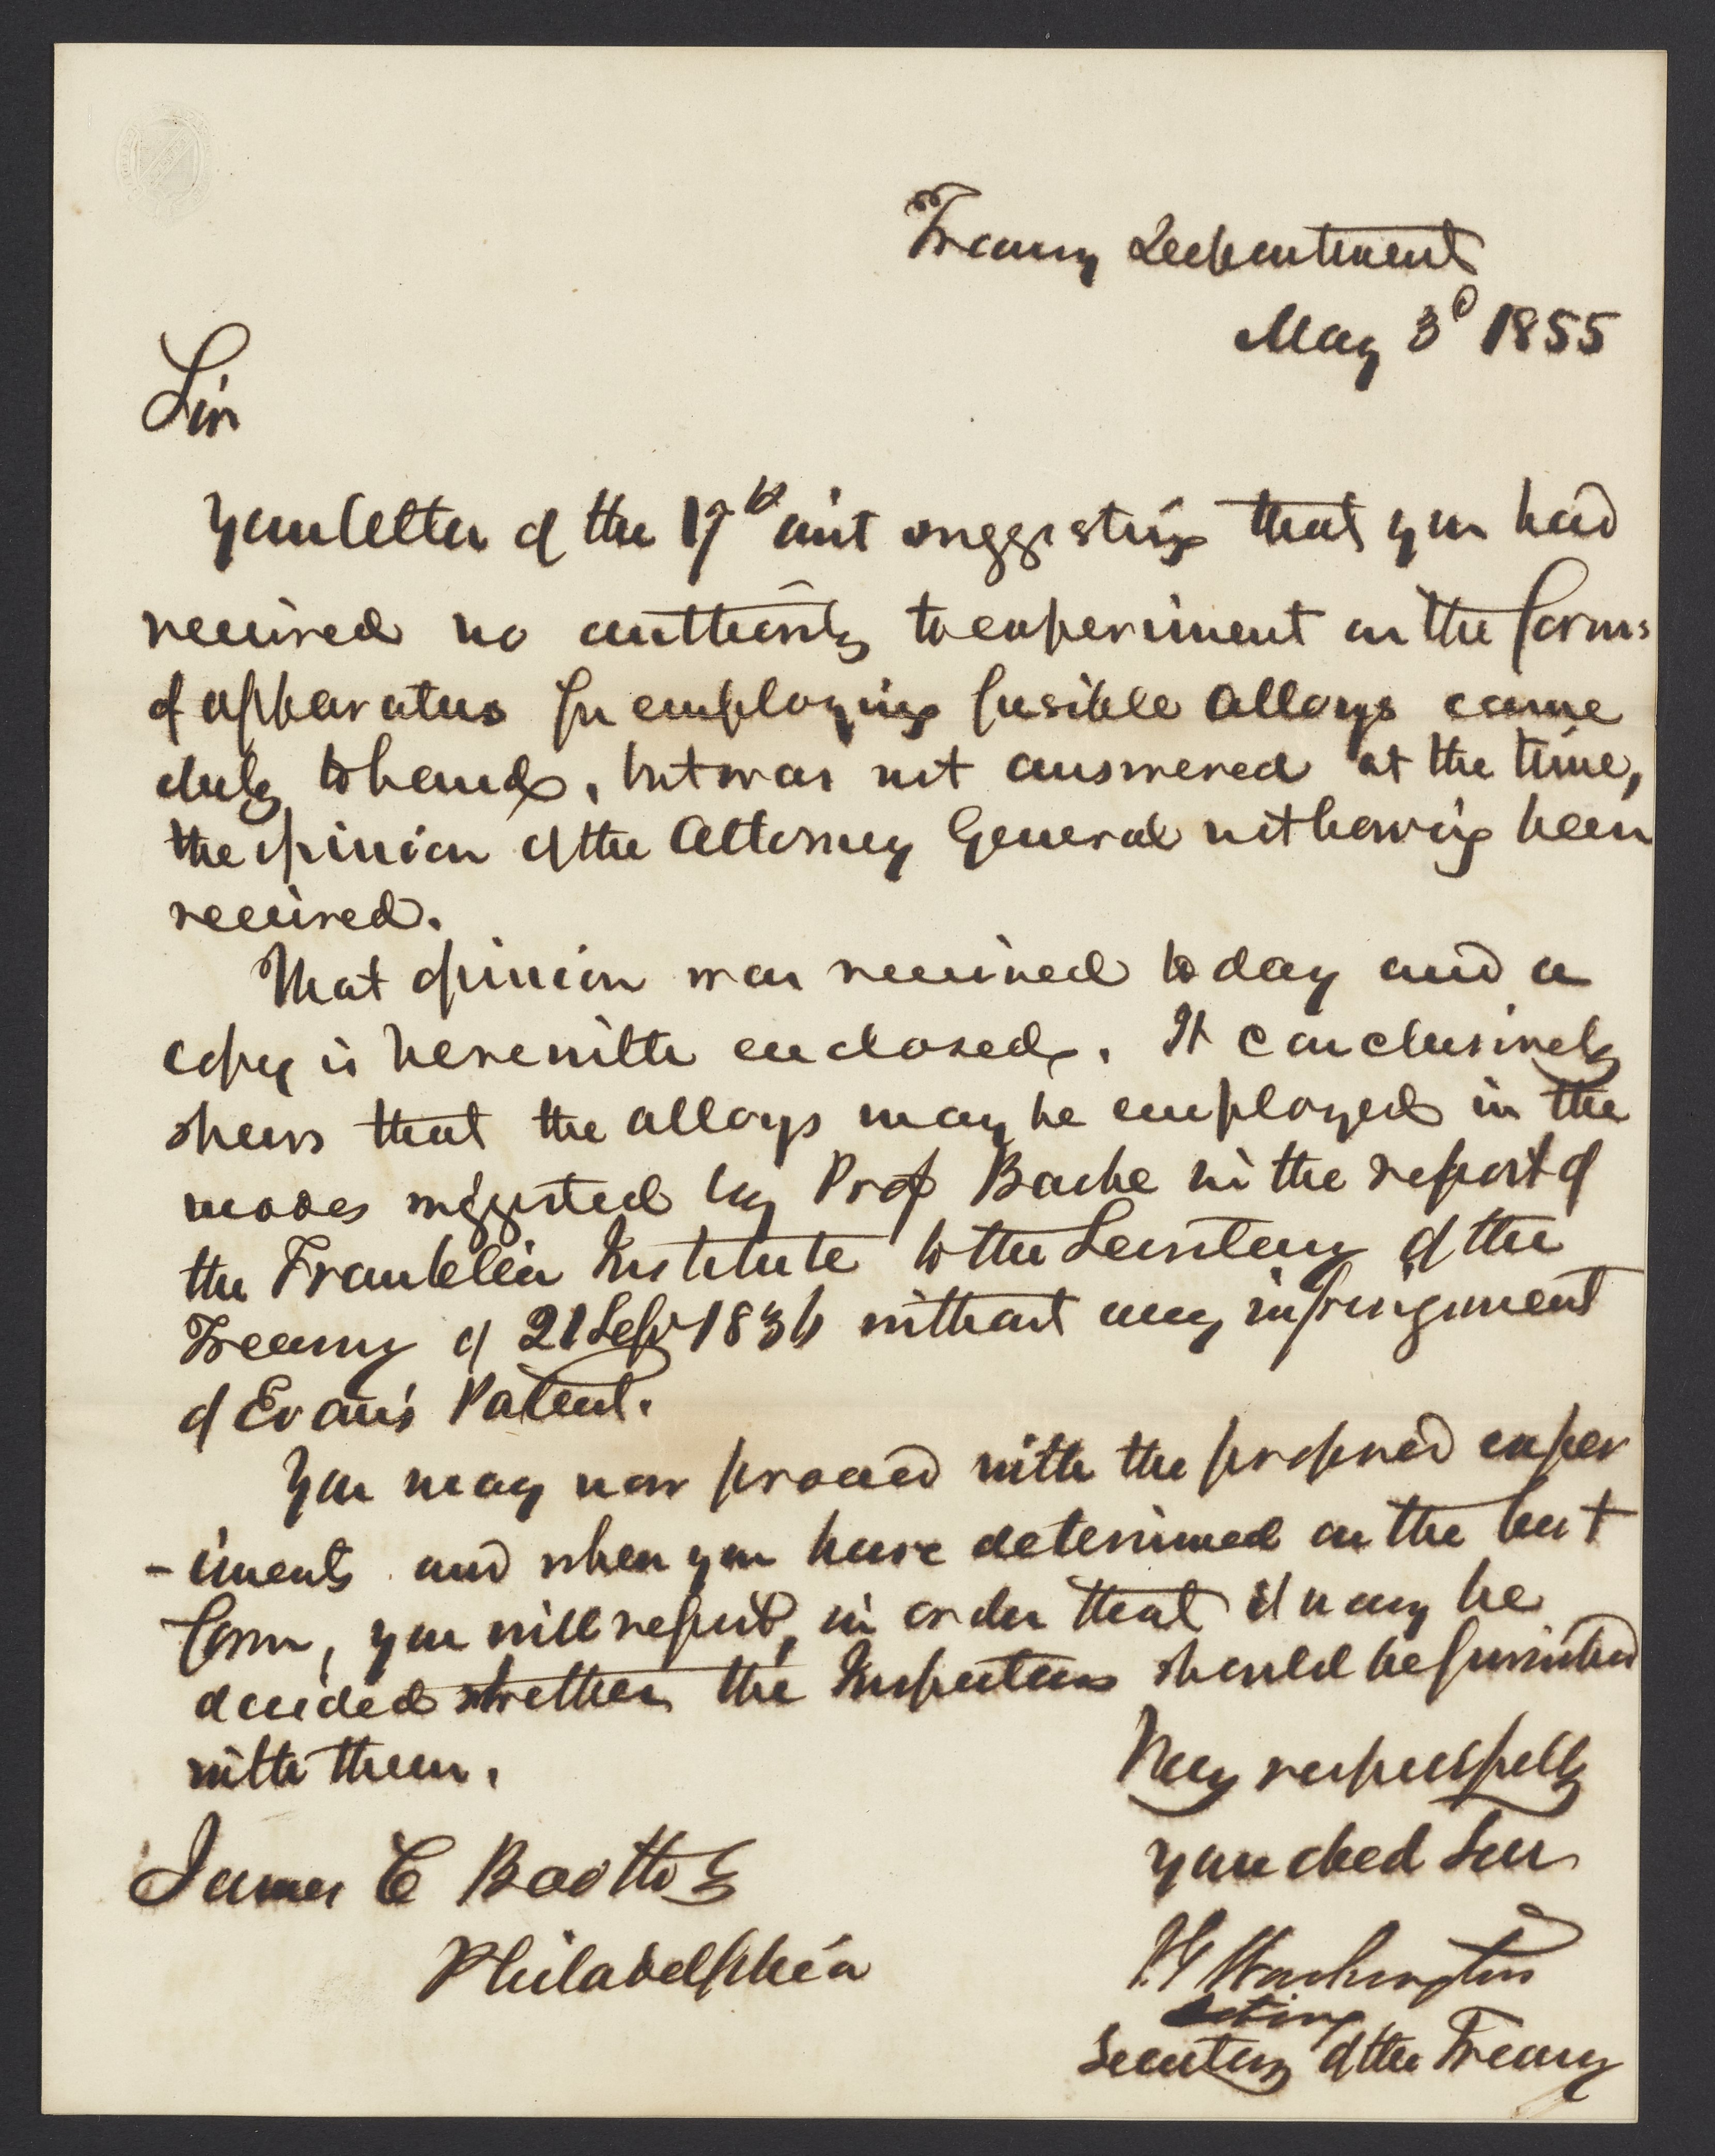 Treasury Department
May 3d 1855
Sir
Your letter of the 17th suggesting that you had
received no authority to experiment on the forms
of apparatus for employing fusible alloys came
duly to hand, but was not answered at the time,
the opinion of the Attorney General not having been
received.
That opinion was received to day and a
copy is herewith enclosed. It conclusively
shews that the alloys may be employed in the
modes suggested by Prof Bache in the report of
the Franklin Institute to the Secretary of the
Treasury of 21 Sepr 1836 without any infringement
of Evans Patent.
You may now proceed with the proposed exper
-iments and when you have determined on the best
form, you will report, in order that it may be
decided whether the Inspectors should be furnished
with them.
Very respectfully
your obed Ser
James C Booth
Philadelphia
P G Washington
Acting
Secretary of the Treasury